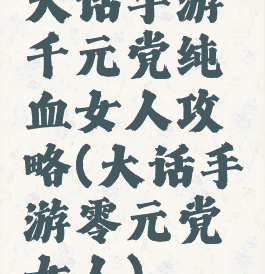 大话手游
千元党纯
血女人攻
略(大话手
游零元党
女人)